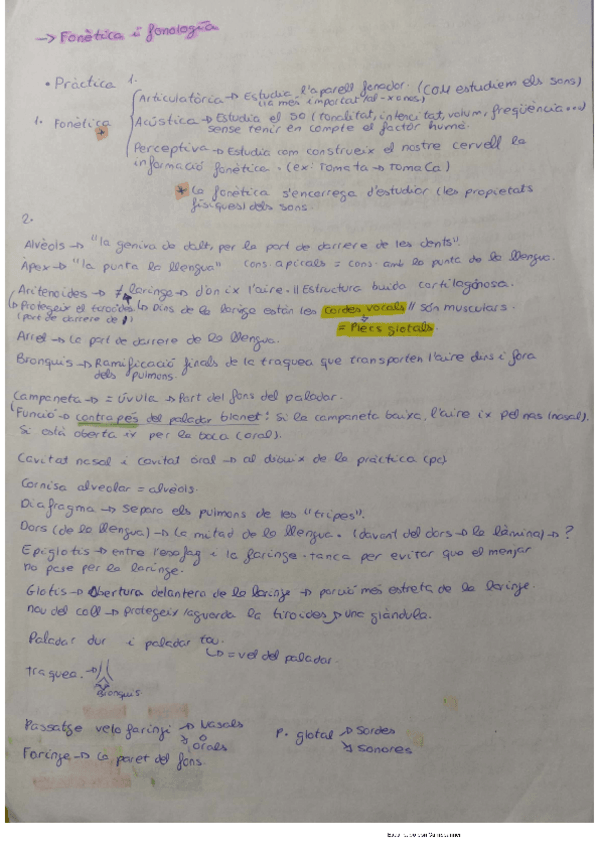 → Fonètica i fonologia
• Pràctica 1.
Articulatòria → Estudia l'aparell fonador. (COM estudiem els sons)
(la més important
1. Fonètica Acústica → Estudia el so (tonalitat, intencitat, volum, freqüència...)
sense tenir en compte el factor humà.
Perceptiva → Estudia com construeix el nostre cervell la
informació fonètica. (ex: Tomata → Tomaca)
* La fonètica s'encarrega d'estudiar (les propietats
físiques) dels sons.
2.
Alvèols → "la geniva de dalt, per la part de darrere de les dents".
Àpex → "la punta la llengua" cons. apicals = cons. amb la punta de la llengua.
Aritenoides → ≠ laringe → d'on ix l'aire. // Estructura buida cartilaginosa.
↳ Protegeix el tiroides. ↳ Dins de la laringe estan les cordes vocals // són musculars.
(part de darrere de = Plecs glotals.
Arrel → La part de darrere de la llengua.
Bronquis → Ramificació finals de la traquea que transporten l'aire dins i fora
dels pulmons.
Campaneta → = úvula → Part del fons del paladar.
Funció → contrapés del paladar blanet: Si la campaneta baixa, l'aire ix pel nas (nasal).
Si està oberta ix per la boca (oral).
Cavitat nasal i cavitat oral → al dibuix de la pràctica (pc)
Cornisa alveolar = alvèols.
Diafragma → Separa els pulmons de les "tripes".
Dors (de la llengua) → La mitad de la llengua. (davant del dors → la làmina) → ?
Epiglotis → entre l'esofag i la faringe. tanca per evitar que el menjar
no pase per la laringe.
Glotis → Obertura delantera de la laringe → porció més estreta de la laringe.
nou del coll → protegeix laguarda la tiroides → una glàndula.
Paladar dur i paladar tou.
↳ = vel del paladar.
traquea. →
Bronquis.
Passatge velofaringi → Nasals P. glotal → Sordes
↘ o orals ↘ sonores
Faringe → La paret del fons.